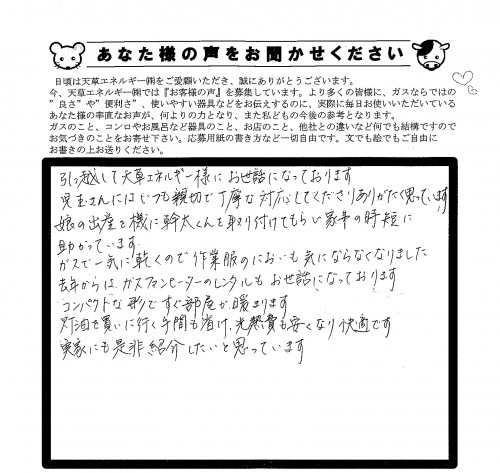 あなた様の声をお聞かせください
日頃は天草エネルギー㈱をご愛顧いただき、誠にありがとうございます。
今、天草エネルギー㈱では『お客様の声』を募集しています。より多くの皆様に、ガスならではの
”良さ”や”便利さ”、使いやすい器具などをお伝えするのに、実際に毎日お使いいただいている
あなた様の率直なお声が、何よりの力となり、また私どもの今後の参考となります。
ガスのこと、コンロやお風呂など器具のこと、お店のこと、他社との違いなど何でも結構ですので
お気づきのことをお寄せ下さい。応募用紙の書き方など一切自由です。文でも絵でもご自由に
お書きの上お送りください。
引っ越して天草エネルギー様にお世話になっております
児玉さんにはいつも親切で丁寧な対応してくださりありがたく思っています
娘の出産を機に幹太くんを取り付けてもらい家事の時短に
助かっています
ガスで一気に乾くので作業服のにおいも気にならなくなりました
去年からは、ガスファンヒーターのレンタルもお世話になっております
コンパクトな形ですぐ部屋が暖まります
灯油を買いに行く手間も省け、光熱費も安くなり快適です
実家にも是非紹介したいと思っています